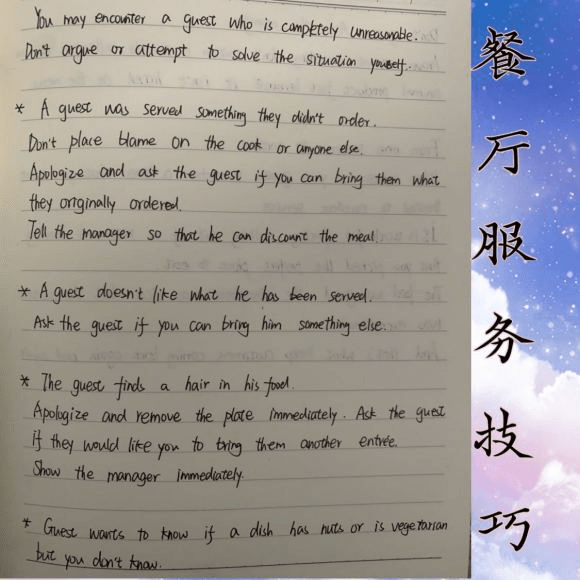 You may encounter a guest who is completely unreasonable.
Don't argue or attempt to solve the situation yourself.
* A guest was served something they didn't order.
Don't place blame on the cook or anyone else.
Apologize and ask the guest if you can bring them what
they originally ordered.
Tell the manager so that he can discount the meal.
* A guest doesn't like what he has been served.
Ask the guest if you can bring him something else.
* The guest finds a hair in his food.
Apologize and remove the plate immediately. Ask the guest
if they would like you to bring them another entrée.
Show the manager immediately.
* Guest wants to know if a dish has nuts or is vegetarian
but you don't know.
餐厅服务技巧